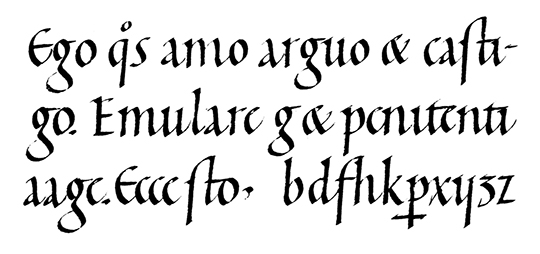 Ego qͦs amo arguo & caſti-
go. Emulare g & penitenti
aage. Ecce ſto, bdfhkꝑxyʒz